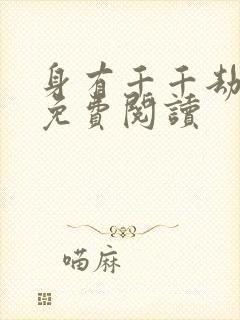 身有千千劫
免費閱讀
喵麻